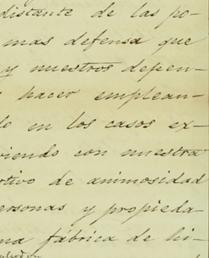 distante de las po-
mas defensa que
y nuestros defen-
hacer emplean-
en los casos ex-
iendo con nuestra
tivo de animosidad
ersonas y propieda-
na fábrica de hi-